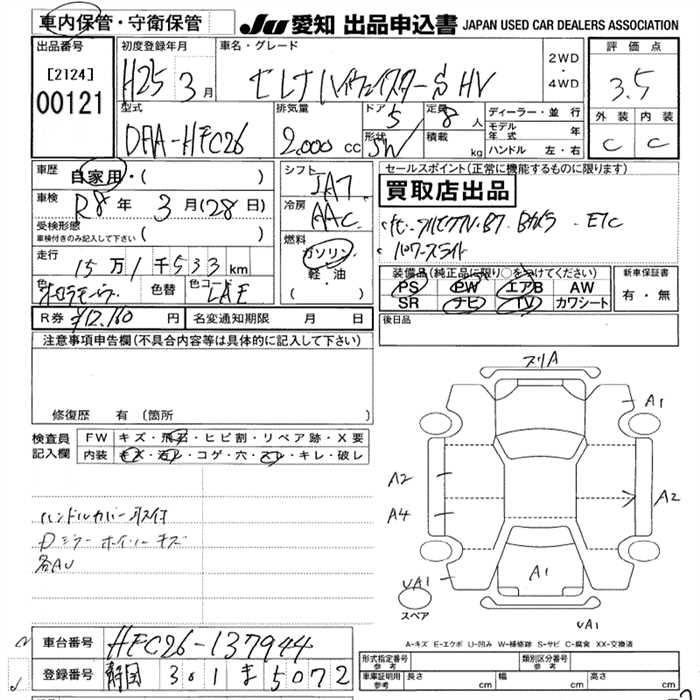 車内保管・守衛保管
JU 愛知 出品申込書 JAPAN USED CAR DEALERS ASSOCIATION
出品番号
[2124]
00121
初度登録年月
H25 3月
車名・グレード
セレナ ハイウェイスターS HV
2WD
・
4WD
評価点
3.5
外装 内装
C C
型式
DAA-HFC26
排気量
2,000 cc
ドア
5
形状
SW
定員
8人
積載
kg
ディーラー・並行
モデル年式 年
ハンドル 左・右
車歴
自家用・( )
車検
R8年 3月(28日)
受検形態
車検付きのみ記入して下さい ( )
走行
15万1千533km
色
色替
色コード
シフト
IA7
冷房
AAC
燃料
ガソリン・
軽・油
( )
セールスポイント(正常に機能するものに限ります)
買取店出品
Bカメラ・ETC
パワースライド
装備品(純正品に限り○をつけてください)
PS PW エアB AW
SR ナビ TV カワシート
新車保証書
有・無
R券 ¥12,160 円
名変通知期限 月 日
後日品
注意事項申告欄(不具合内容等は具体的に記入して下さい)
修復歴 有(箇所 )
検査員記入欄
FW キズ・飛石・ヒビ割・リペア跡・X要
内装 キズ・汚レ・コゲ・穴・スレ・キレ・破レ
ハンドルカバー取付
Dミラー ホイール キズ
各AU
スリA
A1
A2
A2
A4
A1
UA1
UA1
スペア
A-キズ E-エクボ U-凹み W-補修跡 S-サビ C-腐食 XX-交換済
車台番号 HFC26-137944
登録番号 静岡 301 ま 5072
形式指定番号
参考
類別区分番号
参考
車庫証明用
参考
長さ cm
幅 cm
高さ cm